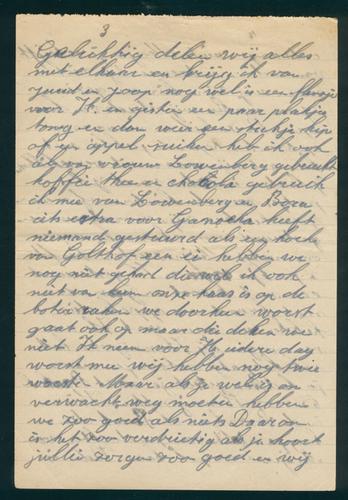 3
Gelukkig delen wij alles
met elkaar en krijg ik van
Juud en Joop nog wel is een flensje
voor H. en gister een paar plakjes
tong en dan weer een stukje kip
of een appel suiker heb ik ook
als van vrouw Löwenberg gebruikt
koffie thee en chocola gebruik
ik mee van Löwenberg en Bora
iets extra voor Ganoeka heeft
niemand gestuurd als een koek
van Golthof een ei hebben we
nog niet gehad die ook
niet van hem onze kaas is op de
boter raken we doorheen worst
gaat ook op maar die delen we
niet Ik neem voor H. iedere dag
worst mee wij hebben nog twee
worsten Maar als ze weg en on
verwacht weg moeten hebben
we zoo goed als niets Daarom
is het zoo verdrietig als je hoort
jullie zorgen zoo goed en wij